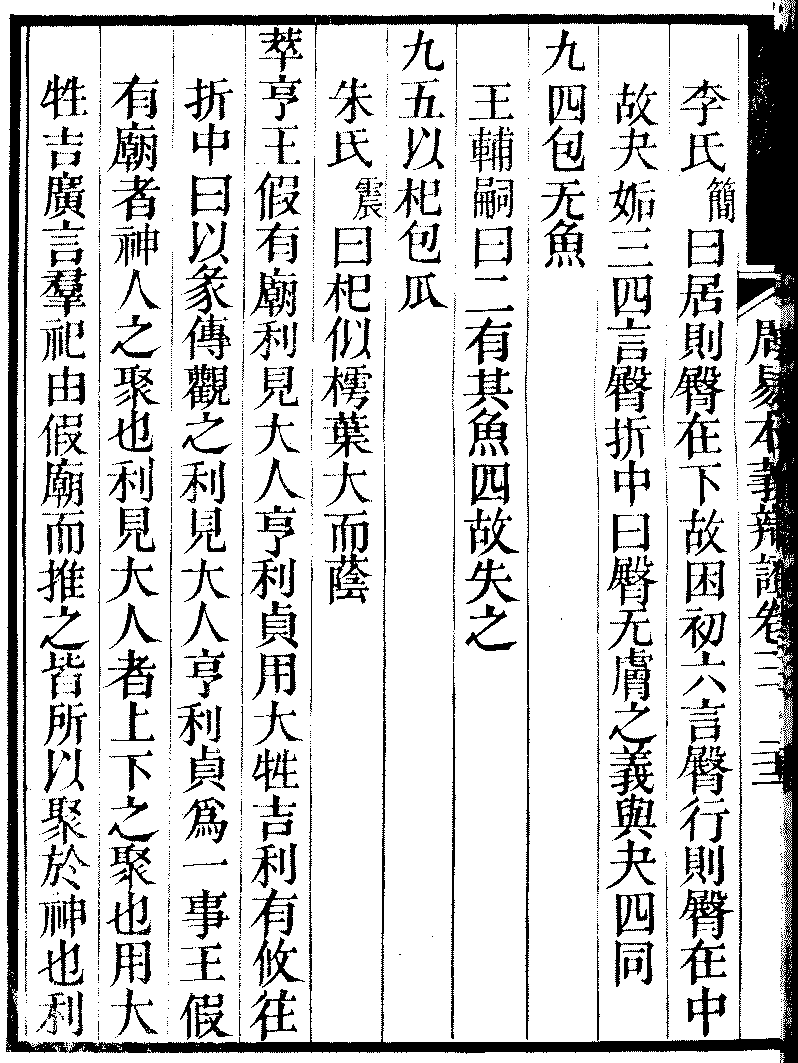 周易本義辯證卷三
李氏簡曰居則臀在下故困初六言臀行則臀在中
故夬姤三四言臀折中曰臀无膚之義與夬四同
九四包无魚
王輔嗣曰二有其魚四故失之
九五以杞包瓜
朱氏震曰杞似樗葉大而蔭
萃亨王假有廟利見大人亨利貞用大牲吉利有攸往
折中曰以彖傳觀之利見大人亨利貞爲一事王假
有廟者神人之聚也利見大人者上下之聚也用大
牲吉廣言羣祀由假廟而推之皆所以聚於神也利